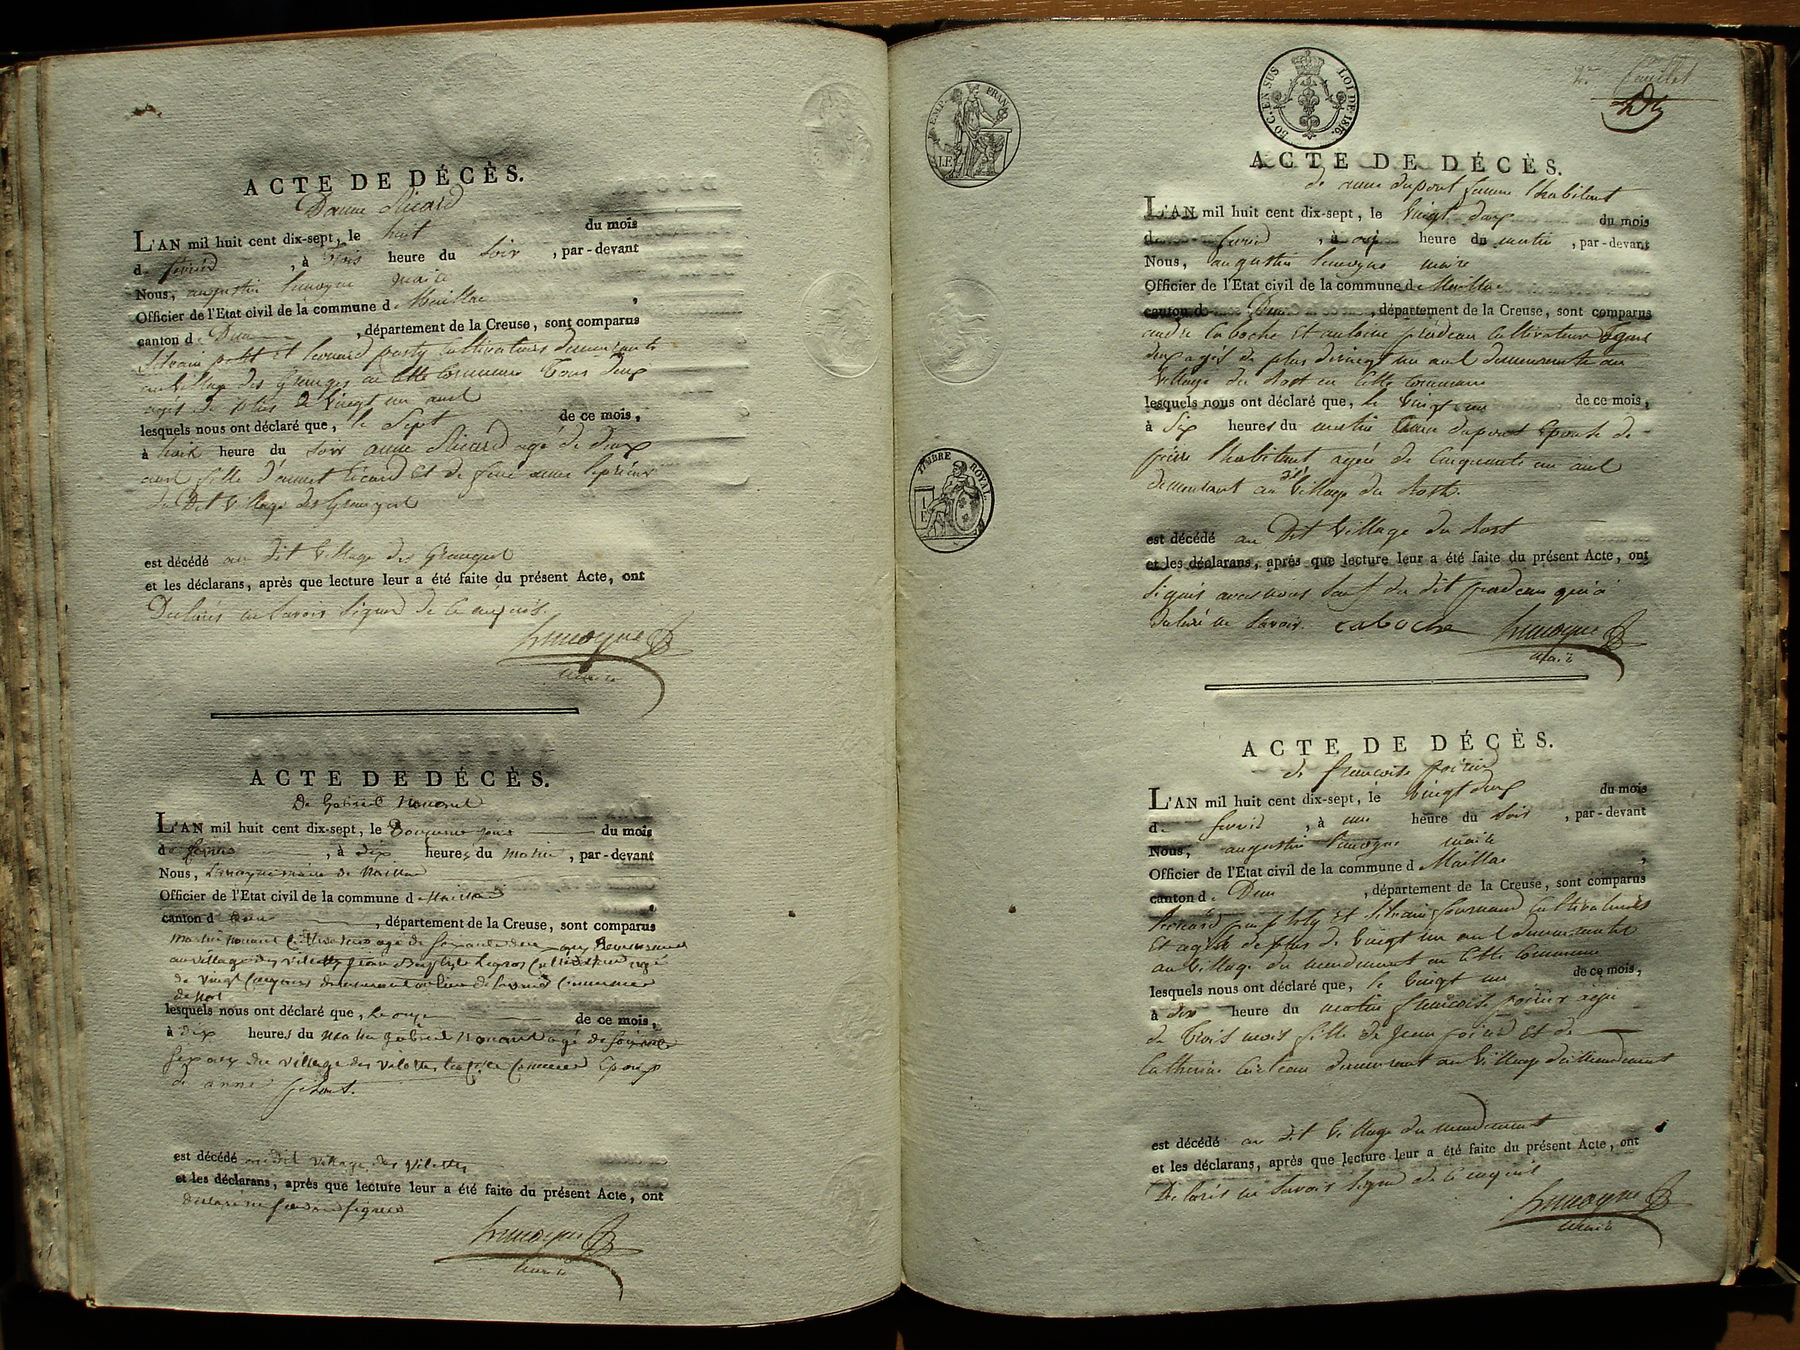 ACTE DE DÉCÈS.
D'anne Ricard
L'AN mil huit cent dix-sept, le huit du mois
de février, à trois heure du soir, par-devant
Nous, augustin Lemoyne maire
Officier de l'Etat civil de la commune de Maillac,
canton de Dun, département de la Creuse, sont comparus
Silvain petit et leonard cultivateurs demeurants
au village des Granges en cette commune tous deux
agés de plus de vingt un ans
lesquels nous ont déclaré que, le sept de ce mois,
à huit heure du soir anne Ricard agé de deux
ans fille d'annet Ricard et de feue anne
du dit village des Granges
est décédé au dit village des Granges
et les déclarans, après que lecture leur a été faite du présent Acte, ont
Declarés ne savoir signer de ce enquis.
Lemoyne
maire
ACTE DE DÉCÈS.
De Gabriel Nouant
L'AN mil huit cent dix-sept, le du mois
de fevrier, à dix heures du matin, par-devant
Nous, Lemoyne maire de Maillac
Officier de l'Etat civil de la commune de Maillac
canton de Dun, département de la Creuse, sont comparus
Martin nouant cultivateur age de soixante deux ans demeurant
au village des vilettes jean Baptiste Legros cultivateur agé
de vingt cinq ans demeurant au lieu de commune
lesquels nous ont déclaré que, le onze de ce mois,
à dix heures du matin gabriel nouant agé de soixante
six ans du village des vilettes commune Epoux
de anne
est décédé au dit village des vilettes
et les déclarans, après que lecture leur a été faite du présent Acte, ont
déclaré ne savoir signer
Lemoyne
maire
EMP. FRAN.
TIMBRE ROYAL
50 C. EN SUS LOI DE 1816.
ACTE DE DÉCÈS.
de anne dupont femme lhabitant
L'AN mil huit cent dix-sept, le vingt deux du mois
de fevrier, à onze heure du matin, par-devant
Nous, augustin Lemoyne maire
Officier de l'Etat civil de la commune de Maillac
canton de Dun, département de la Creuse, sont comparus
andré caboche et antoine cultivateurs
deux agés de plus de vingt un ans demeurants au
village du Rost en cette commune
lesquels nous ont déclaré que, le vingt un de ce mois,
à six heures du matin anne dupont Epouse de
pierre lhabitant agée de cinquante un ans
demeurant au dit village du Rost.
est décédé au Dit village du Rost
et les déclarans, après que lecture leur a été faite du présent Acte, ont
signés avec nous sauf du dit qui a
déclaré ne savoir. caboche Lemoyne
maire
ACTE DE DÉCÈS.
de francoise poirier
L'AN mil huit cent dix-sept, le vingt deux du mois
de fevrier, à une heure du soir, par-devant
Nous, augustin Lemoyne maire
Officier de l'Etat civil de la commune d Maillac,
canton de Dun, département de la Creuse, sont comparus
leonard et silvain cultivateurs
et agés de plus de vingt un ans demeurants
au village du mondement en cette commune
lesquels nous ont déclaré que, le vingt un de ce mois,
à dix heure du matin francoise poirier agée
de trois mois fille de Jean poirier et de
catherine demeurant au village du Mondement
est décédé au dit village du mondement
et les déclarans, après que lecture leur a été faite du présent Acte, ont
Declarés ne savoir signer de ce enquis
Lemoyne
maire